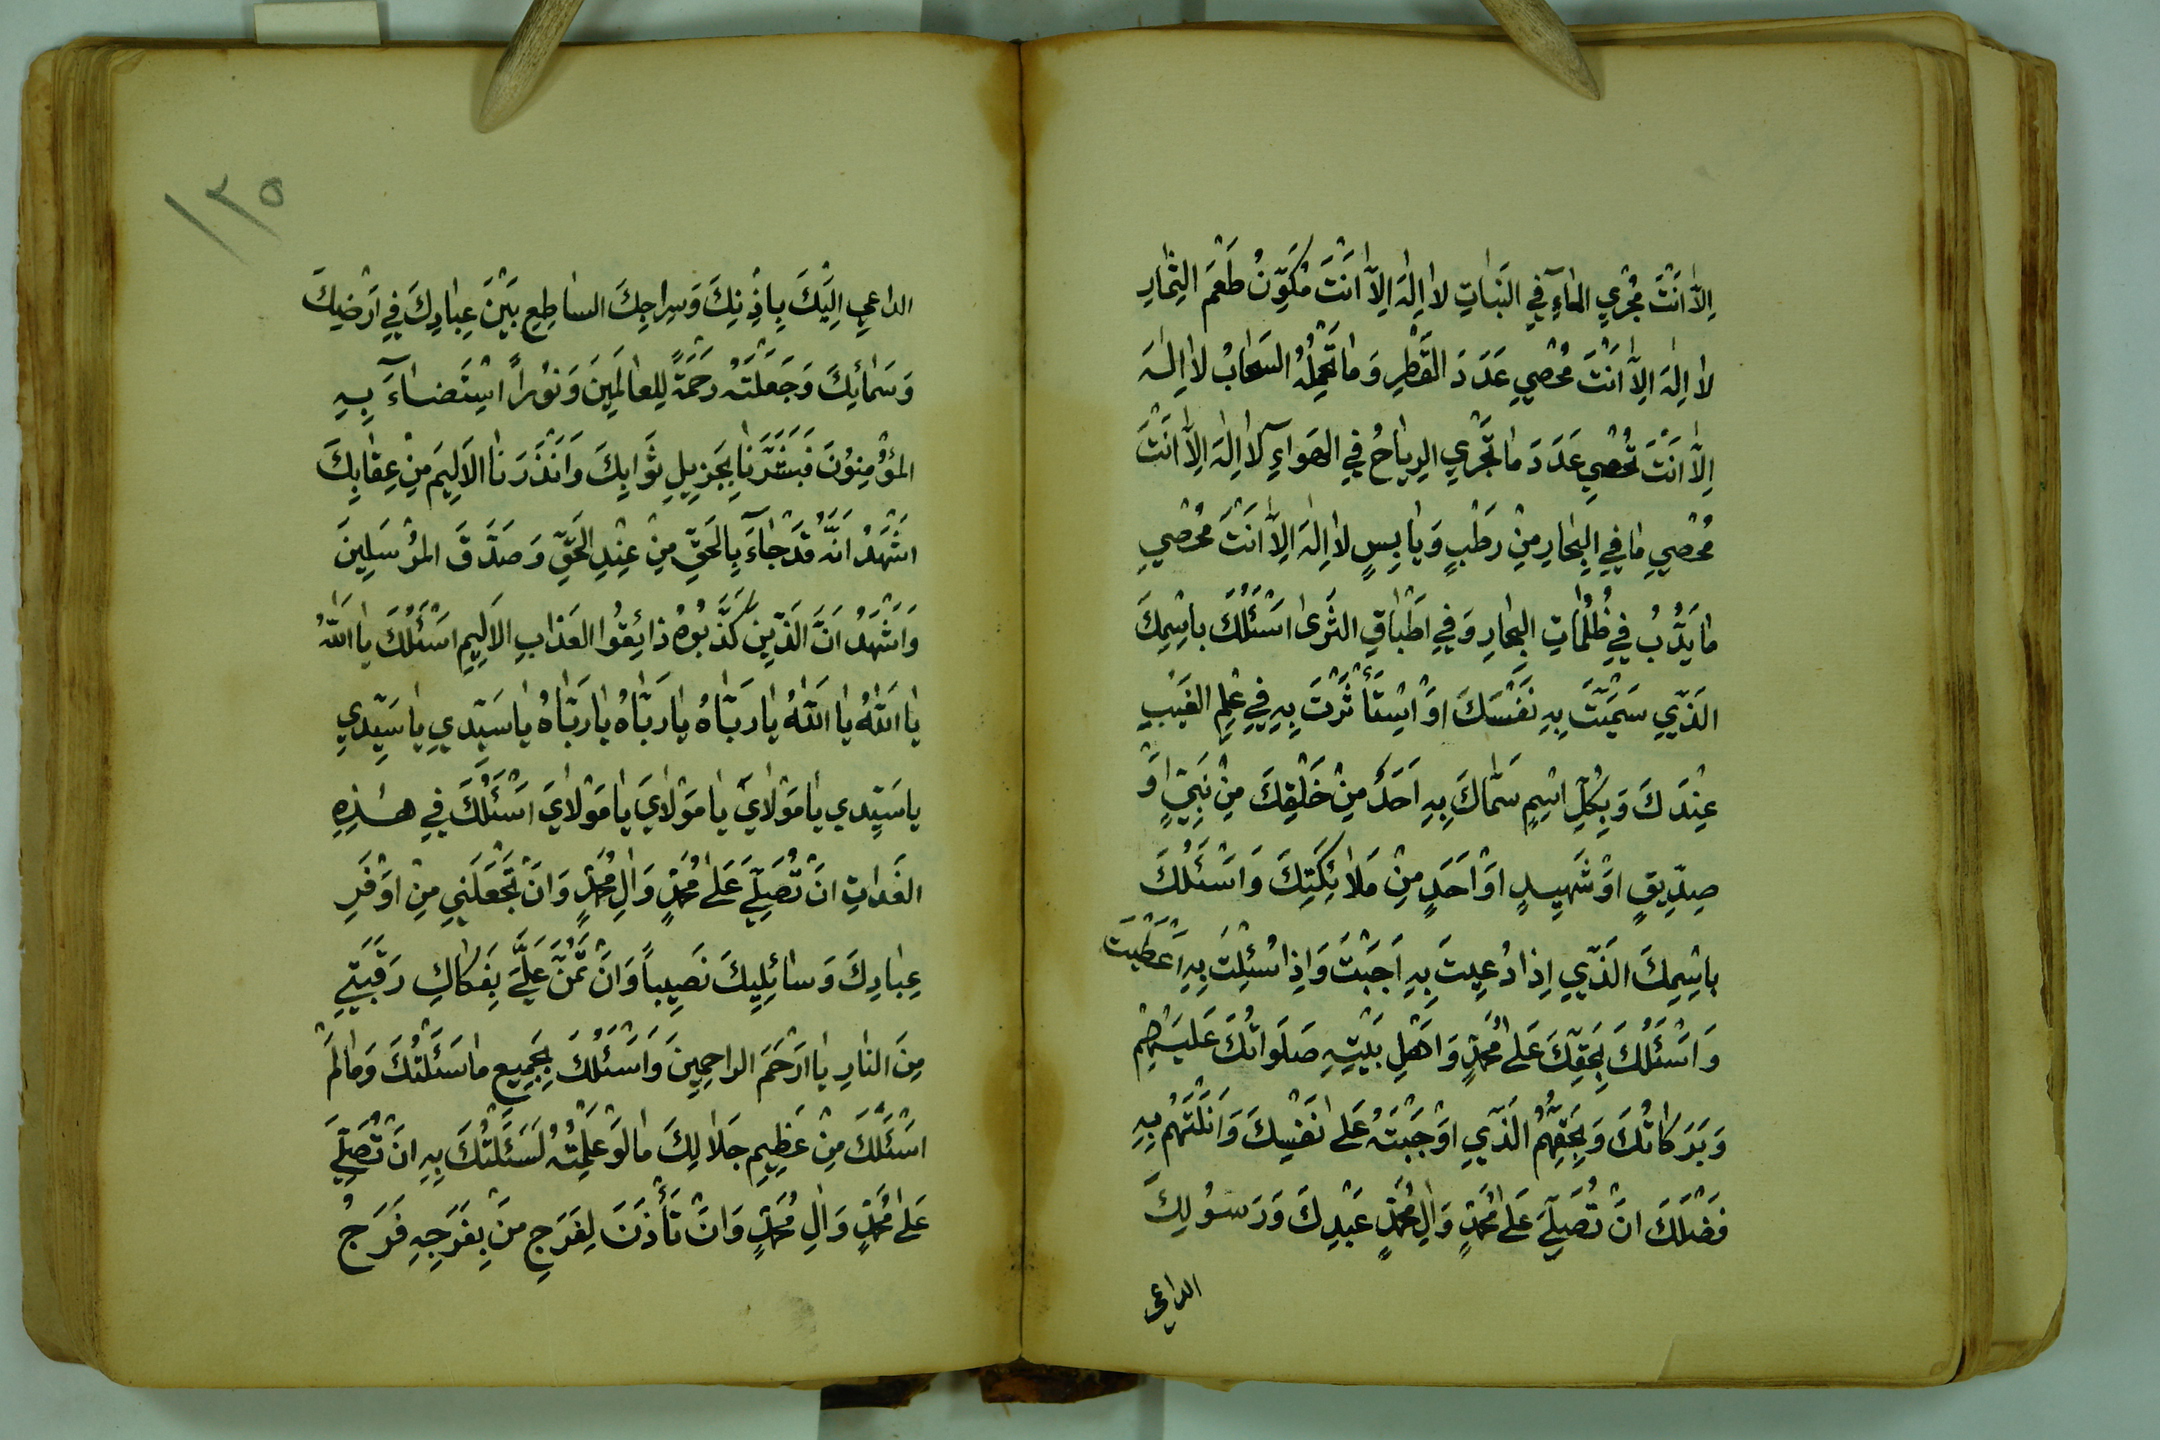 اِلاّٰ اَنْتَ مُجْرِي الْمٰاءِ فِي النَبٰاتِ لاٰ اِلٰهَ اِلاّٰ اَنْتَ مُكَوِّنُ طَعْمَ الثِمٰارِ
لاٰ اِلٰهَ اِلاّٰ اَنْتَ مُحْصِي عَدَدَ القَطْرِ وَمٰا تَحْمِلُهُ السَحٰابُ لاٰ اِلٰهَ
اِلاّٰ اَنْتَ تُحْصِي عَدَدَ مٰا تَجْرِي الرِيٰاحُ فِي الهَوٰاءِ لاٰ اِلٰهَ اِلاّٰ اَنْتَ
مُحْصِي مٰا فِي البِحٰارِ مِنْ رَطْبٍ وَيٰابِسٍ لاٰ اِلٰهَ اِلاّٰ اَنْتَ مُحْصِي
مٰا يَدُبُّ فِي ظُلُمٰاتِ البِحٰارِ وَفِي اَطْبٰاقِ الثَرىٰ اَسْئَلُكَ بِاسْمِكَ
الَذّي سَمَيّتَ بِهِ نَفْسَكَ اَوْ اسْتَأْثَرْتَ بِهِ فِي عْلِمِ الغَيْبِ
عِنْدَكَ وَبِكُلِّ اسْمٍ سَمّٰاكَ بِهِ اَحَدٌ مِنْ خَلْقِكَ مِنْ نَبِيٍّ اَوْ
صِدّيِقٍ اَوْ شَهِيدٍ اَوْ اَحَدٍ مِنْ مَلاٰئِكَتِكَ وَاَسْئَلُكَ
بِاسْمِكَ الَذّي اِذٰا دُعِيتَ بِهِ اَجَبْتَ وَاِذٰا سُئِلْتَ بِهِ اَعْطَيْتَ
وَاَسْئَلُكَ بِحَقِّكَ عَلىٰ مُحَمَّدٍ وَاَهْلِ بَيْتِهِ صَلَوٰاتُكَ عَلَيْهِمْ
وَبَرَكٰاتُكَ وَبِحَقِّهِمُ الَذّي اَوْجَبْتَهُ عَلىٰ نَفْسِكَ وَاَنَلْتَهُمْ بِهِ
فَضْلَكَ اَنْ تُصَلِّيَ عَلىٰ مُحَمَّدٍ وَاٰلِ مُحَمَّدٍ عَبْدِكَ وَرَسُولِكَ
الداعى
١٣٥
الداعِي اِلَيْكَ بِاِذْنِكَ وَسِراجِكَ الساطِعِ بَيْنَ عِبٰادِكَ فِي اَرْضِكَ
وَسَمٰائِكَ وَجَعَلْتَهُ رَحْمَةً لِلعٰالَمِينَ وَنُوراً اسْتَضٰاءَ بِهِ
المُؤْمِنوُنَ فَبَشَّرَنٰا بِجَزِيلِ ثَوابِكَ وَاَنْذَرَنٰا الاَلِيمَ مِنْ عِقٰابِكَ
اَشْهَدُ اَنَّهُ قَدْ جٰاءَ بِالحَقِّ مِنْ عِنْدِ الحَقِّ وَصَدَّقَ المُرْسَلِينَ
وَاَشْهَدُ اَنَّ الَذّينَ كَذَّبُوهُ ذائِقُوا العَذابِ الاَلِيمِ اَسْئَلُكَ يٰا اَللّٰهُ
يٰا اَللّٰهُ يٰا اَللّٰهُ يٰا رَبّٰاهُ يٰا رَبّٰاهُ يٰا رَبّٰاهُ يٰا سَيِّدي يٰا سَيِّدي
يٰا سَيِّدي يٰا مَوْلاٰيَ يٰا مَوْلاٰيَ يٰا مَوْلاٰيَ اَسْئَلُكَ فِي هٰذِهِ
الغَداتِ اَنْ تُصَلِّيَ عَلىٰ مُحَمَّدٍ وَاٰلِ مُحَمَّدٍ وَاَنْ تَجْعَلَنِي مِنْ اَوْفَرِ
عِبٰادِكَ وَسٰائِلِيكَ نَصِيباً وَاَنْ تَمُنَّ عَلَيَّ بِفَكٰاكِ رَقَبَتِي
مِنَ النٰارِ يٰا اَرْحَمَ الراحِمِينَ وَاَسْئَلُكَ بِجَمِيعِ مٰا سَئَلْتُكَ وَمٰا لَمْ
اَسْئَلْكَ مِنْ عَظِيمِ جَلاٰلِكَ مٰا لَوْ عَلِمْتُهُ لَسَئَلْتُكَ بِهِ اَنْ تُصَلِّيَ
عَلىٰ مُحَمَّدٍ وَاٰلِ مُحَمَّدٍ وَاَنْ تَأْذَنَ لِفَرَجِ مَنْ بِفَرَجِهِ فَرَجُ